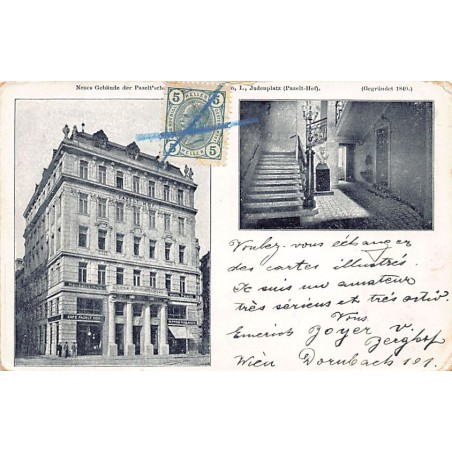 Neues Gebäude der Pazelt'sch
I., Judenplatz (Pazelt-Hof).
(Gegründet 1840.)
5 5
HELLER
5 5
CAFE PAZELT HOF
Voulez-vous échanger
des cartes illustrés.
Je suis un amateur
très sérieus et très activ.
Vous
Emerich Joyer v.
Berghof
Wien Dornbach 101.